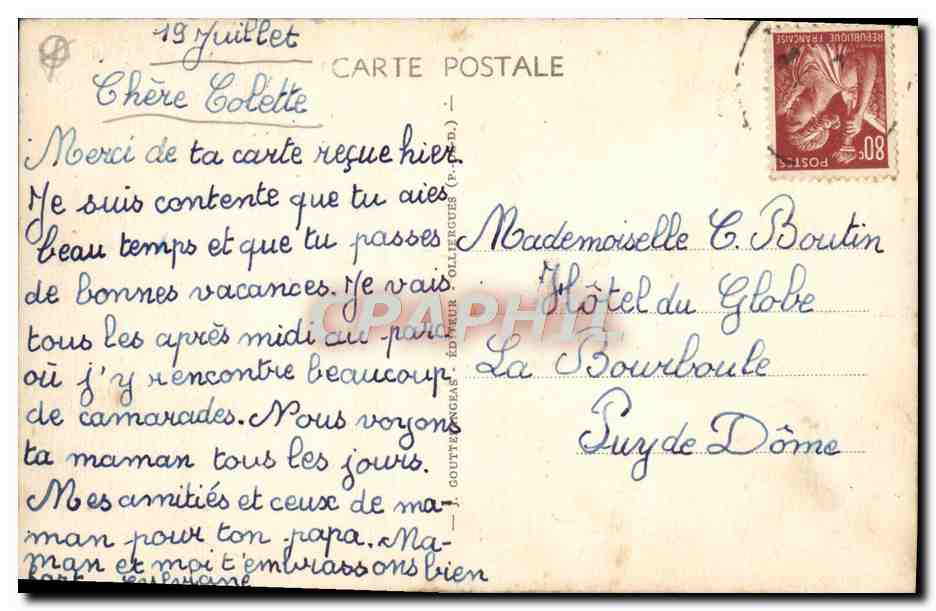 19 Juillet
CARTE POSTALE
Chère Colette
Merci de ta carte reçue hier.
Je suis contente que tu aies
beau temps et que tu passes
de bonnes vacances. Je vais
tous les après midi au parc
où j'y rencontre beaucoup
de camarades. Nous voyons
ta maman tous les jours.
Mes amitiés et ceux de ma-
man pour ton papa. Ma-
man et moi t'embrassons bien
fort.
J. GOUTTEFANGEAS - ÉDITEUR - OLLIERGUES (P.-DE-D.)
REPUBLIQUE FRANÇAISE
POSTES
80c
Mademoiselle C. Boutin
Hôtel du Globe
La Bourboule
Puy de Dôme
CPAPHIL